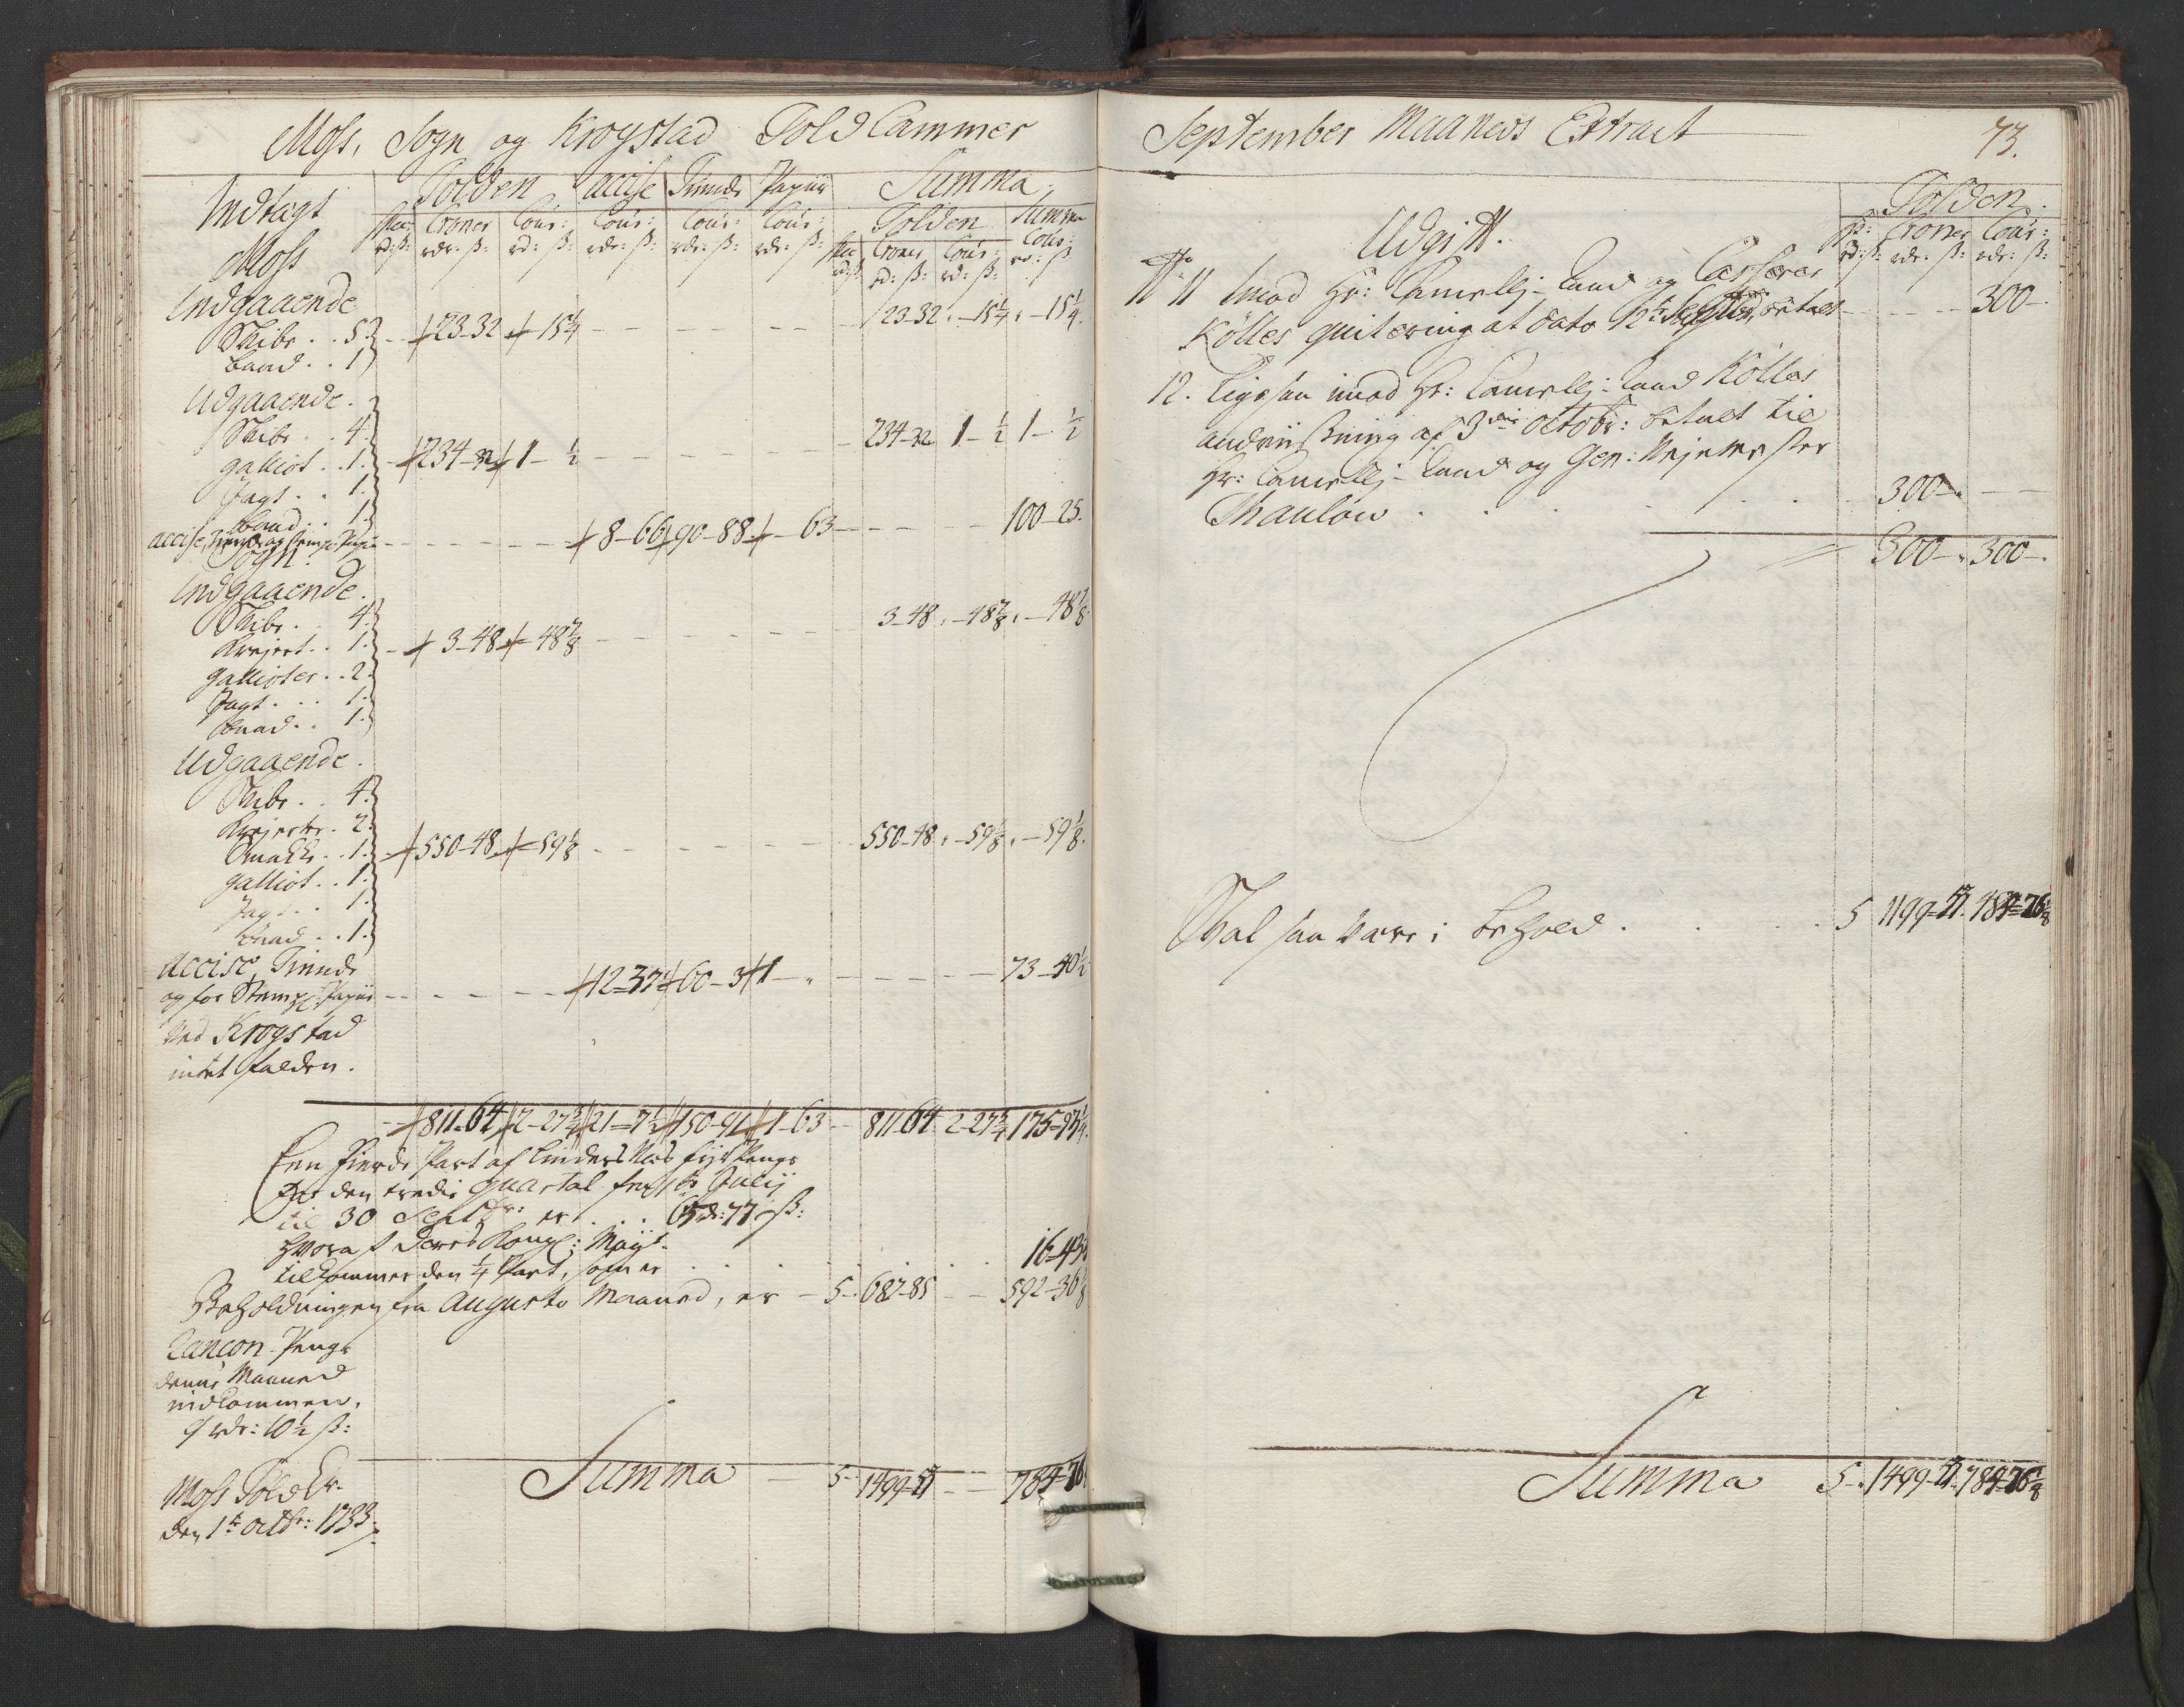 Moss, Sogn og Krogstad Told Cammer
Indtægt Tolden Accise Tiende Papiir Summa
Croner Cour: Cour: Cour: Cour: Tolden Summa
rdr: ß: rd: ß: rdr: ß: rdr: ß: rdr: ß: Croner Cour: Cour:
rd: ß: rd: ß: rd: ß
Moss
Indgaaende
Skibe . . 5. 23-32 15¼ - - - 23-32 - 15¼ - 15¼.
Baad . . 1
Udgaaende.
Skibe . . 4.
Galliot . . 1. 234-32 1-½ - - - 234-32 1-½ 1-½
Jagt . . 1.
Baad . . 1.
Accise, Tiende og Stempl: Papiir - - - 8-66 90-88 - 63 - - - 100-25.
Sogn.
Indgaaende.
Skibe . . 4.
Krejert . . 1. 3-48 - 48⅞ - - - 3-48 - 48⅞ - 48⅞.
Gallioter . . 2.
Jagt . . . 1.
Baad . . 1.
Udgaaende.
Skibe . . 4.
Krejerter . 2.
Smakke . . 1. 550-48 - 59⅛ - - - 550-48 - 59⅛ - 59⅛.
Galliot . . 1.
Jagt . . 1.
Baad . . 1.
Accise, Tiende
og for Stempl: Papiir - - - 12-37½ 60-3 1- - - - 73-40½
Ved Krogstad
intet falden.
811-64 2-27¾ 21-7½ 150-91 1-63 - 811-64 2-27¾ 175-93¼.
Een fierde Part af fyr Penge
for den tredie Quartal fra 1te Julij
til 30 Septbr: er . . . 65 rdr: 77 ß:
hvoraf Deres Kongl: Mayt.
tilkommer den ¼ Part, som er . . . 16-43
Beholdningen fra Augusto Maaned, er - 5- 687-85 - - 592-36
Rancon-Penge
denne Maaned
indkommen.
rdr: 10½ ß:
Moss Told
den 1te Octbr: 1733.
Summa - 5- 1499-53 - - 784-76
September Maaneds Extract
73.
Udgift.
Tolden.
Croner Cour:
rdr. ß: rdr: ß:
11 Imod Hr: Camerllj-Raad og Casserer
Kölles quitering at dato 12te betalt - - - 300-.
12. Ligesaa imod Hr: Camerllj-Raad Kölles
andviißning af 3die Octobr: betalt til
Hr: Camerllj-Raad og Gen: Vejemester
Thaulow . . . . . 300-. - -
300-. 300-.
Skal saa være i behold . . . . 5 1199-53. 484-76⅛
Summa 5-. 1499-53. 784-76⅛